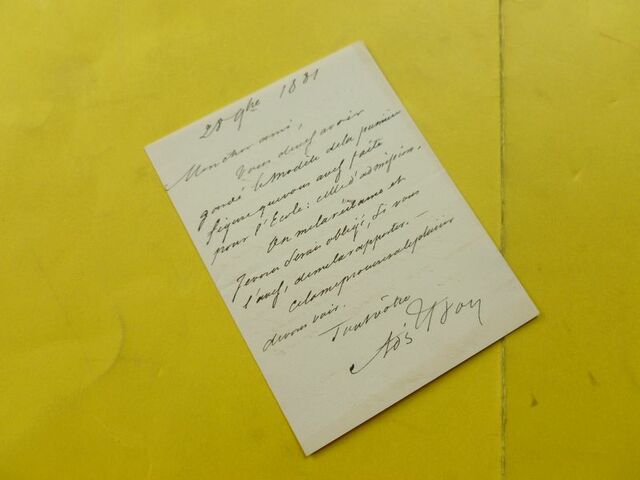 28 9bre 1881
Mon cher ami,
Vous devez avoir
gardé le modèle de la première
figure que vous avez faite
pour l'Ecole: celle d'admission.
On me la réclame et
je vous serais obligé, si vous
l'avez, de me la rapporter. —
Cela me procurera le plaisir
de vous voir.
Tout vôtre
Ad.